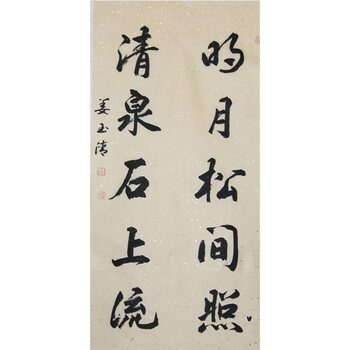 明月松间照
清泉石上流
姜玉清